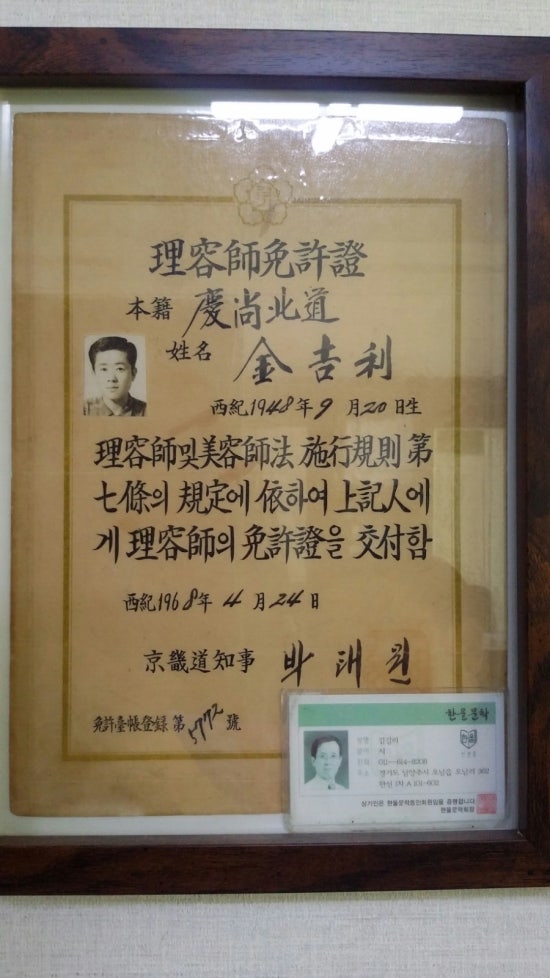 理容師免許證
本籍 慶尙北道
姓名 金吉利
西紀1948年9月20日生
理容師및美容師法 施行規則 第
七條의 規定에 依하여 上記人에
게 理容師의 免許證을 交付함
西紀1968年4月24日
京畿道知事 박태원
免許臺帳登録 第5772號
한울문학
성명 김길리
분야 시
전화 011-614-8208
주소 경기도 남양주시 오남읍 오남리 362
한신 1차 A 101-602
상기인은 한울문학동인회원임을 증명합니다
한울문학회장